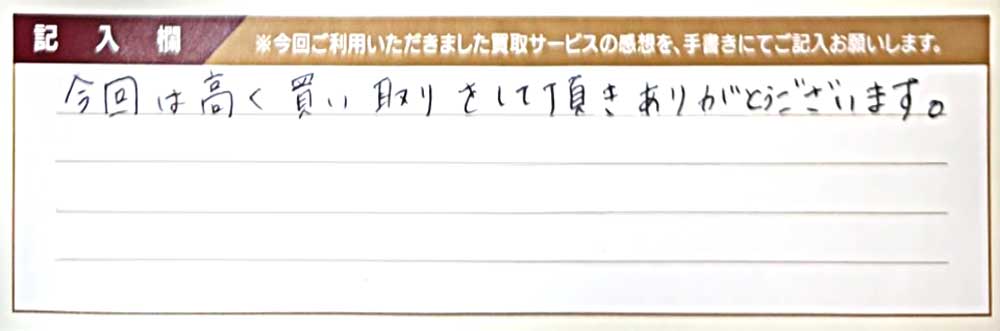 記入欄
※今回ご利用いただきました買取サービスの感想を、手書きにてご記入お願いします。
今回は高く買い取りをして頂きありがとうございます。